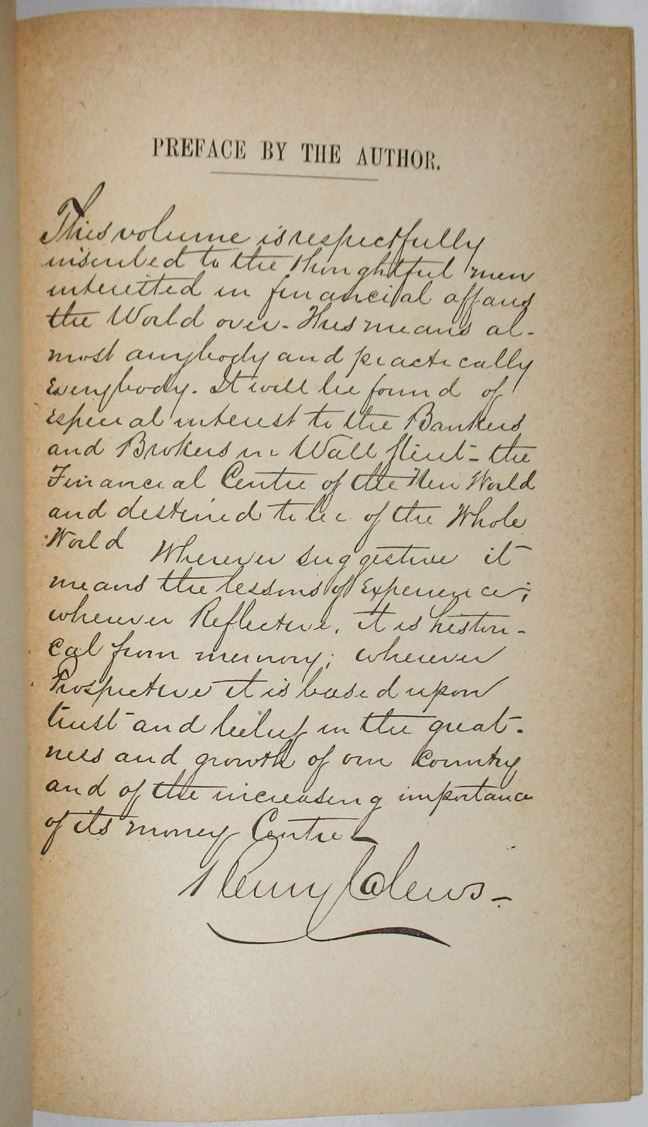 PREFACE BY THE AUTHOR.
This volume is respectfully
inscribed to the thoughtful men
interested in financial affairs
the World over. This means al-
most anybody and practically
Everybody. It will be found of
especial interest to the Bankers
and Brokers in Wall Street - the
Financial Centre of the New World
and destined to be of the Whole
World Wherever suggestive it
means the lessons of Experience;
wherever Reflective, it is histori-
cal from memory; wherever
Prospective it is based upon
trust and belief in the great-
ness and growth of our Country
and of the increasing importance
of its money Centre -
Henry Clews -